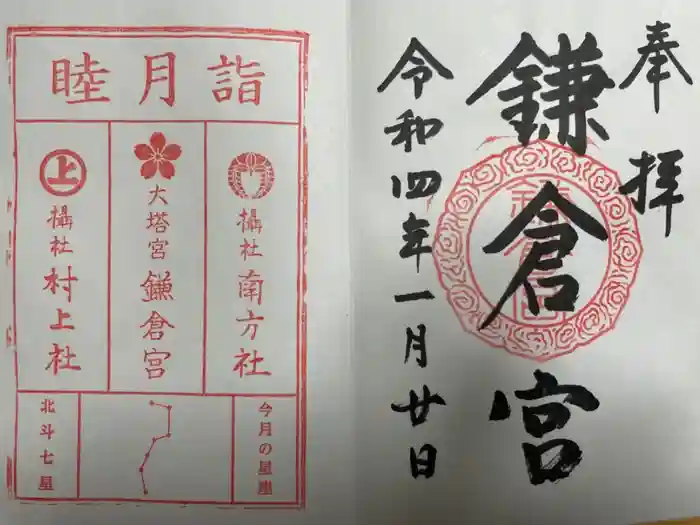 奉拝
鎌倉宮
令和四年一月廿日
睦月詣
摂社 南方社
大塔宮 鎌倉宮
上
攝社 村上社
今月の星座
北斗七星